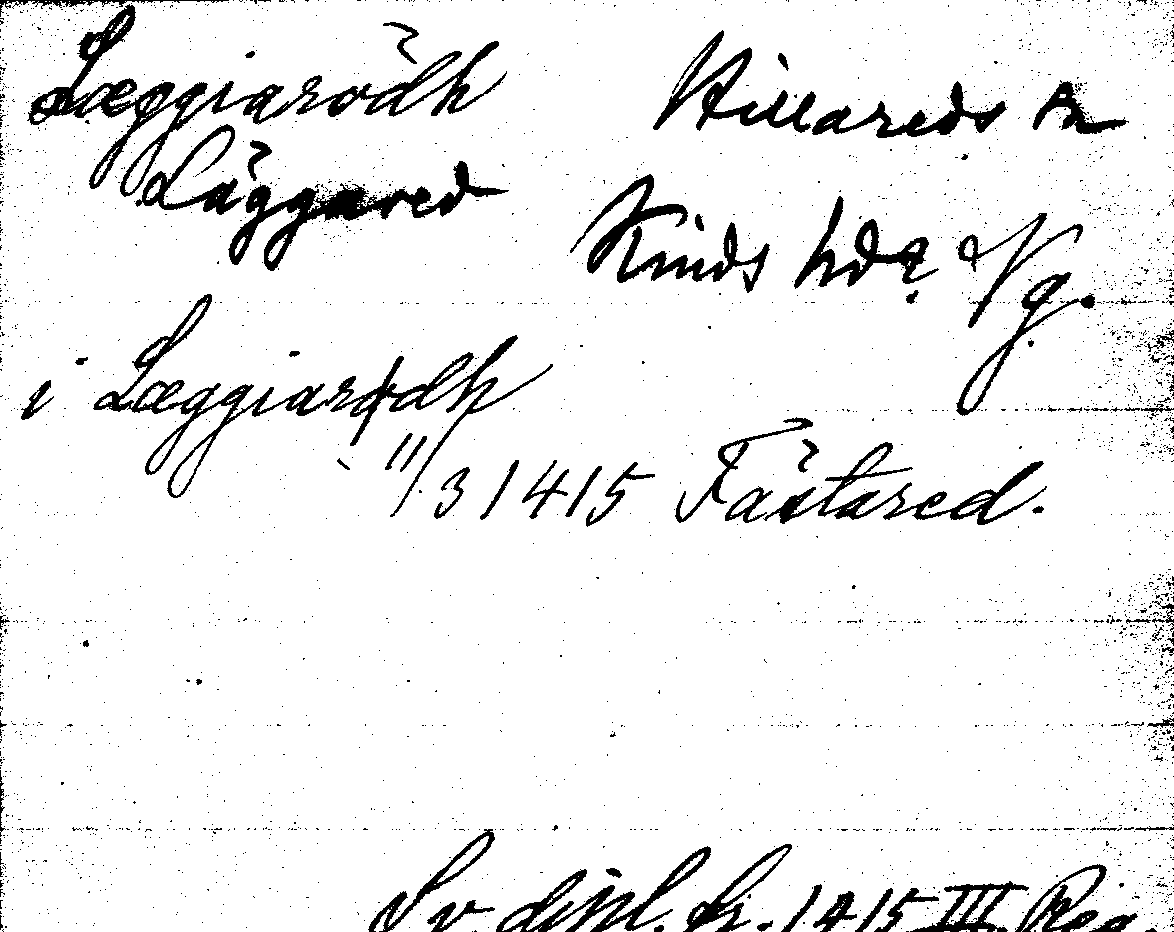 Læggiarödh Hillareds sn
Läggared
Kinds hd Vg.
i Læggiarødh
11/3 1415 Fästared.
Sv. dipl. fr. 1415 III. Reg.